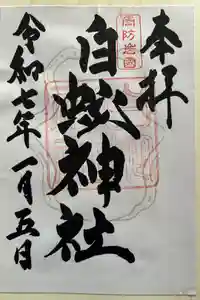 奉拝
周防岩国
白蛇神社
令和七年一月五日